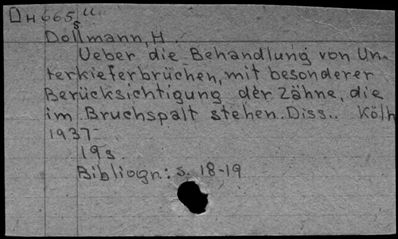 DH665 u
Dollmann, H.
Ueber die Behandlung von Un-
terkieferbrüchen, mit besonderer
Berücksichtigung der Zähne, die
im Bruchspalt stehen. Diss.. Köln
1937
19s.
Bibliogr.: s. 18-19